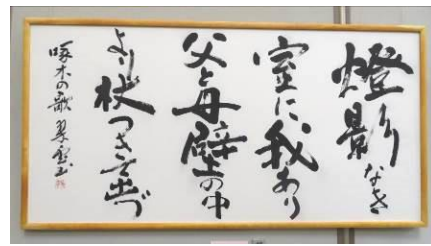 燈影なき
室に我あり
父と母壁の中
より杖つきて出づ
啄木の歌 翠雪